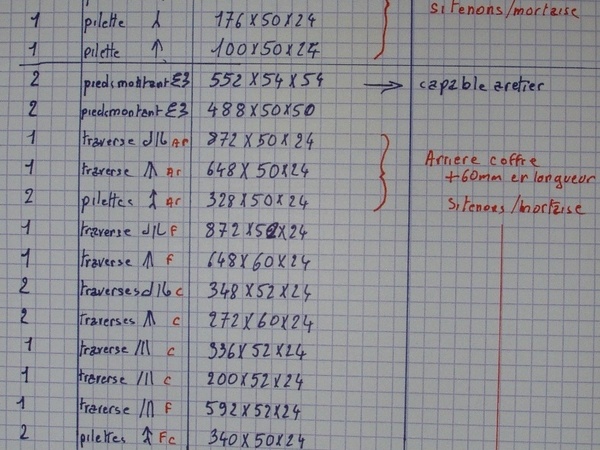 si tenons/mortaise
1 pilette 176 X 50 X 24
1 pilette ↑ 100 X 50 X 24
2 pieds montant E3 552 X 54 X 54 → capable aretier
2 pieds montant E3 488 X 50 X 50
1 traverse d/b Ar 872 X 50 X 24
1 traverse Ar 648 X 50 X 24
Arriere coffre
+60mm en longueur
2 pilettes Ar 328 X 50 X 24
si tenons/mortaise
1 traverse d/b F 872 X 52 X 24
1 traverse F 648 X 60 X 24
2 traverses d/b C 348 X 52 X 24
2 traverses C 272 X 60 X 24
1 traverse C 336 X 52 X 24
1 traverse C 200 X 52 X 24
1 traverse F 592 X 52 X 24
2 pilettes FC 340 X 50 X 24